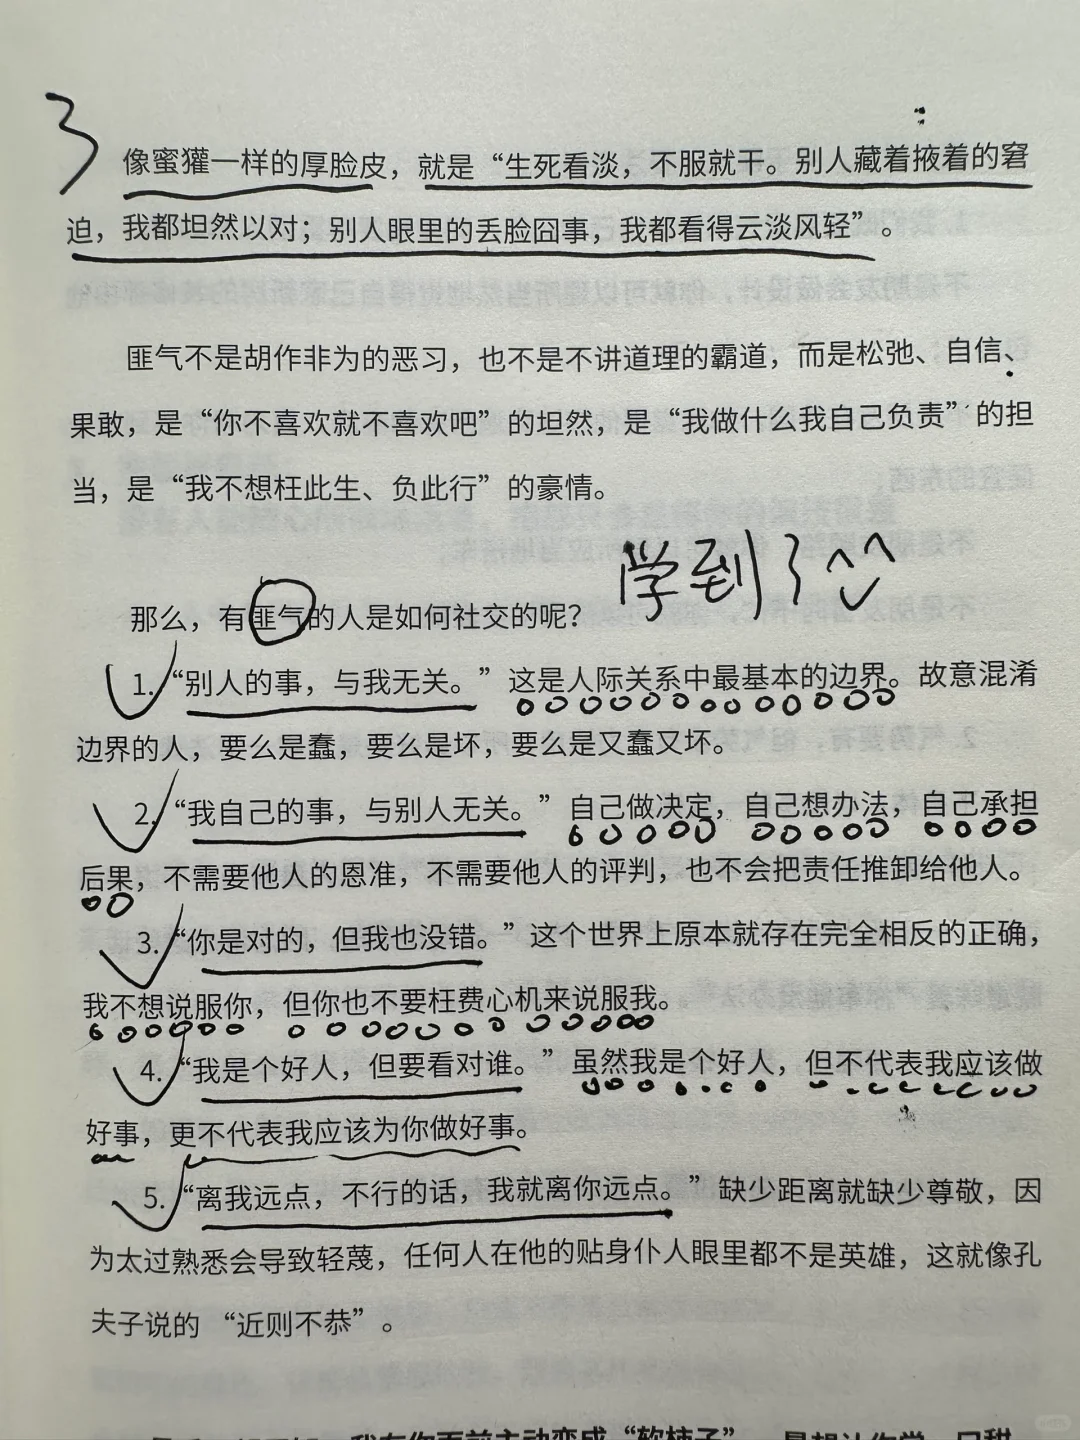 3
像蜜獾一样的厚脸皮，就是“生死看淡，不服就干。别人藏着掖着的窘
迫，我都坦然以对；别人眼里的丢脸囧事，我都看得云淡风轻”。
匪气不是胡作非为的恶习，也不是不讲道理的霸道，而是松弛、自信、
果敢，是“你不喜欢就不喜欢吧”的坦然，是“我做什么我自己负责”的担
当，是“我不想枉此生、负此行”的豪情。
学到了
那么，有匪气的人是如何社交的呢？
1.“别人的事，与我无关。”这是人际关系中最基本的边界。故意混淆
边界的人，要么是蠢，要么是坏，要么是又蠢又坏。
2.“我自己的事，与别人无关。”自己做决定，自己想办法，自己承担
后果，不需要他人的恩准，不需要他人的评判，也不会把责任推卸给他人。
3.“你是对的，但我也没错。”这个世界上原本就存在完全相反的正确，
我不想说服你，但你也不要枉费心机来说服我。
4.“我是个好人，但要看对谁。”虽然我是个好人，但不代表我应该做
好事，更不代表我应该为你做好事。
5.“离我远点，不行的话，我就离你远点。”缺少距离就缺少尊敬，因
为太过熟悉会导致轻蔑，任何人在他的贴身仆人眼里都不是英雄，这就像孔
夫子说的“近则不恭”。
我在你面前主动变成“软柿子”，是想让你尝一口甜